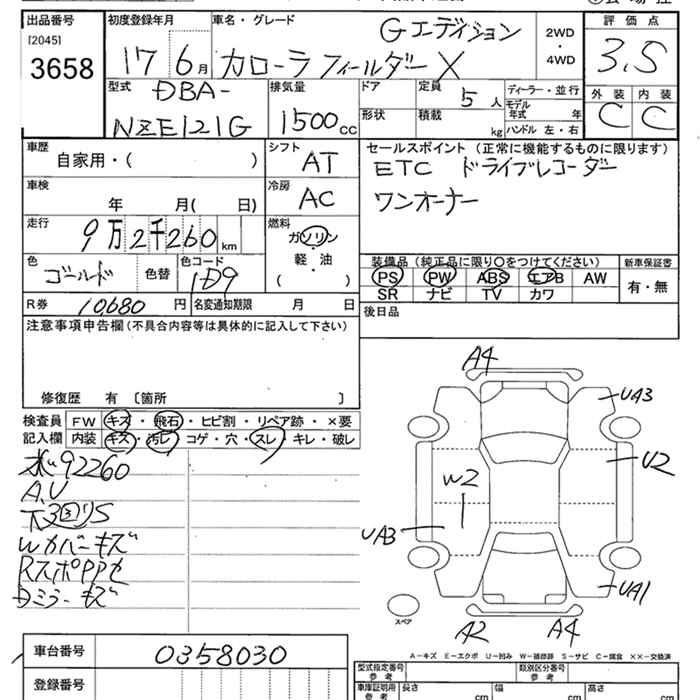 出品番号
[2045]
3658
初度登録年月
17 6月
車名・グレード
Gエディション
カローラ フィールダー X
2WD
・
4WD
評価点
3.5
外装 内装
C C
型式
DBA-
NZE121G
排気量
1500cc
ドア
定員 5人
形状
積載 kg
ディーラー・並行
モデル年式 年
ハンドル 左・右
車歴
自家用・( )
シフト
AT
車検
年 月( 日)
冷房
AC
走行
9万2千260km
燃料
ガソリン
軽・油
( )
色
ゴールド
色替
色コード
1D9
R券 10680円
名変通知期限 月 日
セールスポイント(正常に機能するものに限ります)
ETC ドライブレコーダー
ワンオーナー
装備品(純正品に限り○をつけてください)
PS PW ABS エアB AW
SR ナビ TV カワ
新車保証書
有・無
後日品
注意事項申告欄(不具合内容等は具体的に記入して下さい)
修復歴 有 〔箇所 〕
検査員 FW キズ・飛石・ヒビ割・リペア跡・×要
記入欄 内装 キズ・汚レ・コゲ・穴・スレ・キレ・破レ
92260
A.U
下3リS
Wカバーキズ
RスポPPセ
Dミラーキズ
A4
UA3
U2
W2
UA3
UA1
A2
A4
スペア
A－キズ E－エクボ U－凹み W－補修跡 S－サビ C－腐食 ××－交換済
車台番号 0358030
登録番号
型式指定番号
参考
類別区分番号
参考
車庫証明用
参考
長さ cm
幅 cm
高さ cm